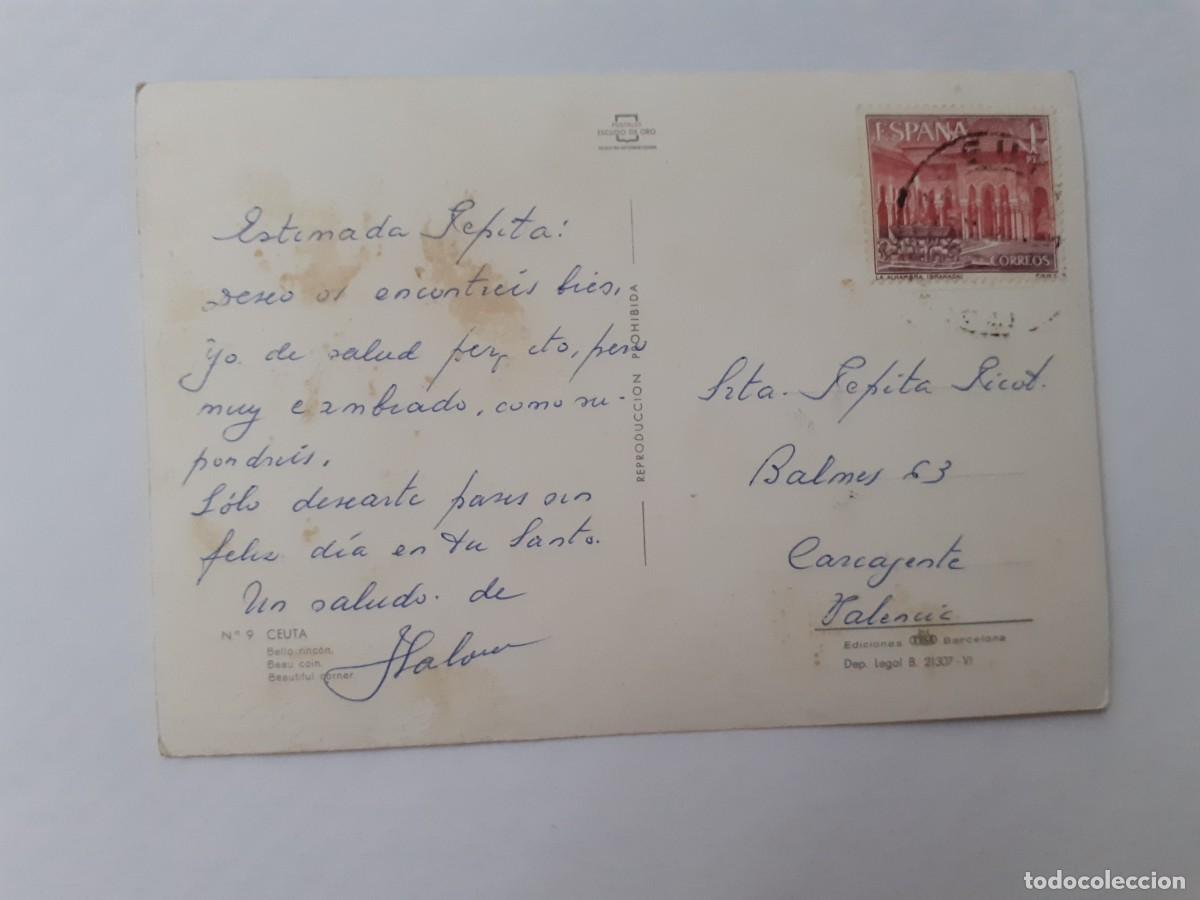 POSTALES
ESCUDO DE ORO
ESPAÑA
1
PTA
CORREOS
LA ALHAMBRA (GRANADA)
F.N.M.T.
Estimada Pepita:
Deseo os encontreis bien,
Yo de salud perfecto, pero
muy cambiado, como su-
pondreis.
Sólo desearte pases un
feliz día en tu Santo.
Un saludo de
REPRODUCCION PROHIBIDA
Srta. Pepita Picot.
Balmes 63
Carcagente
Valencia
Nº 9 CEUTA
Bello rincón.
Beau coin.
Beautiful corner.
Ediciones Barcelona
Dep. Legal B. 21307-VI
todocoleccion